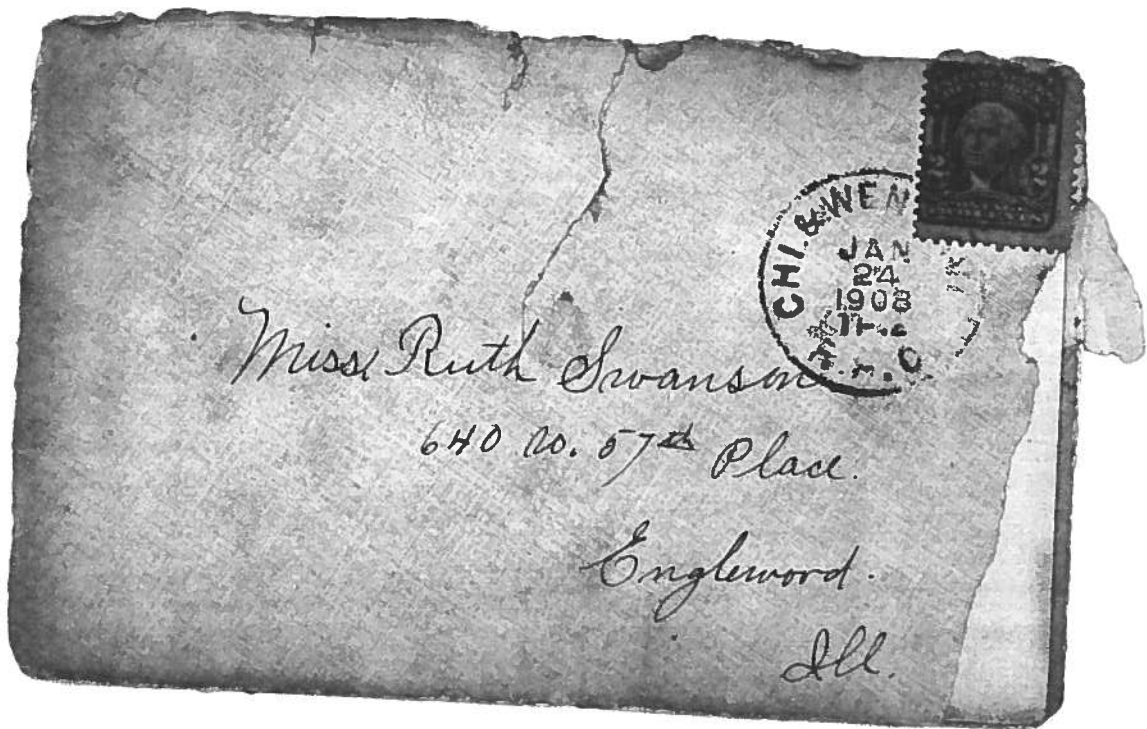 CHI. & WEN
JAN
24
1908
Miss Ruth Swanson
640 W. 57th Place.
Englewood.
Ill.